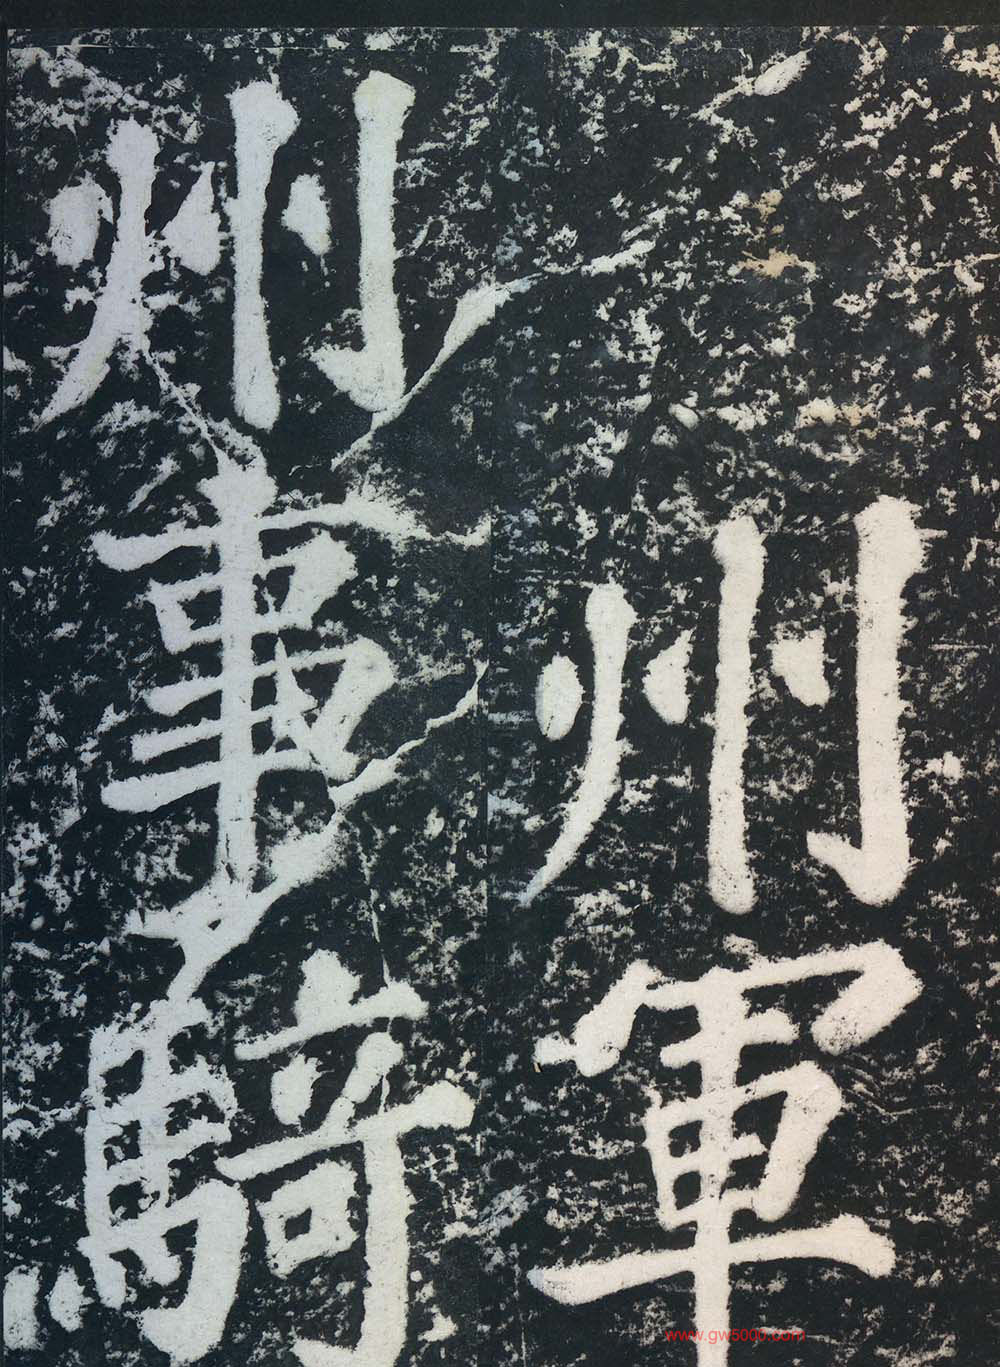 州軍
州事騎
www.gw5000.com